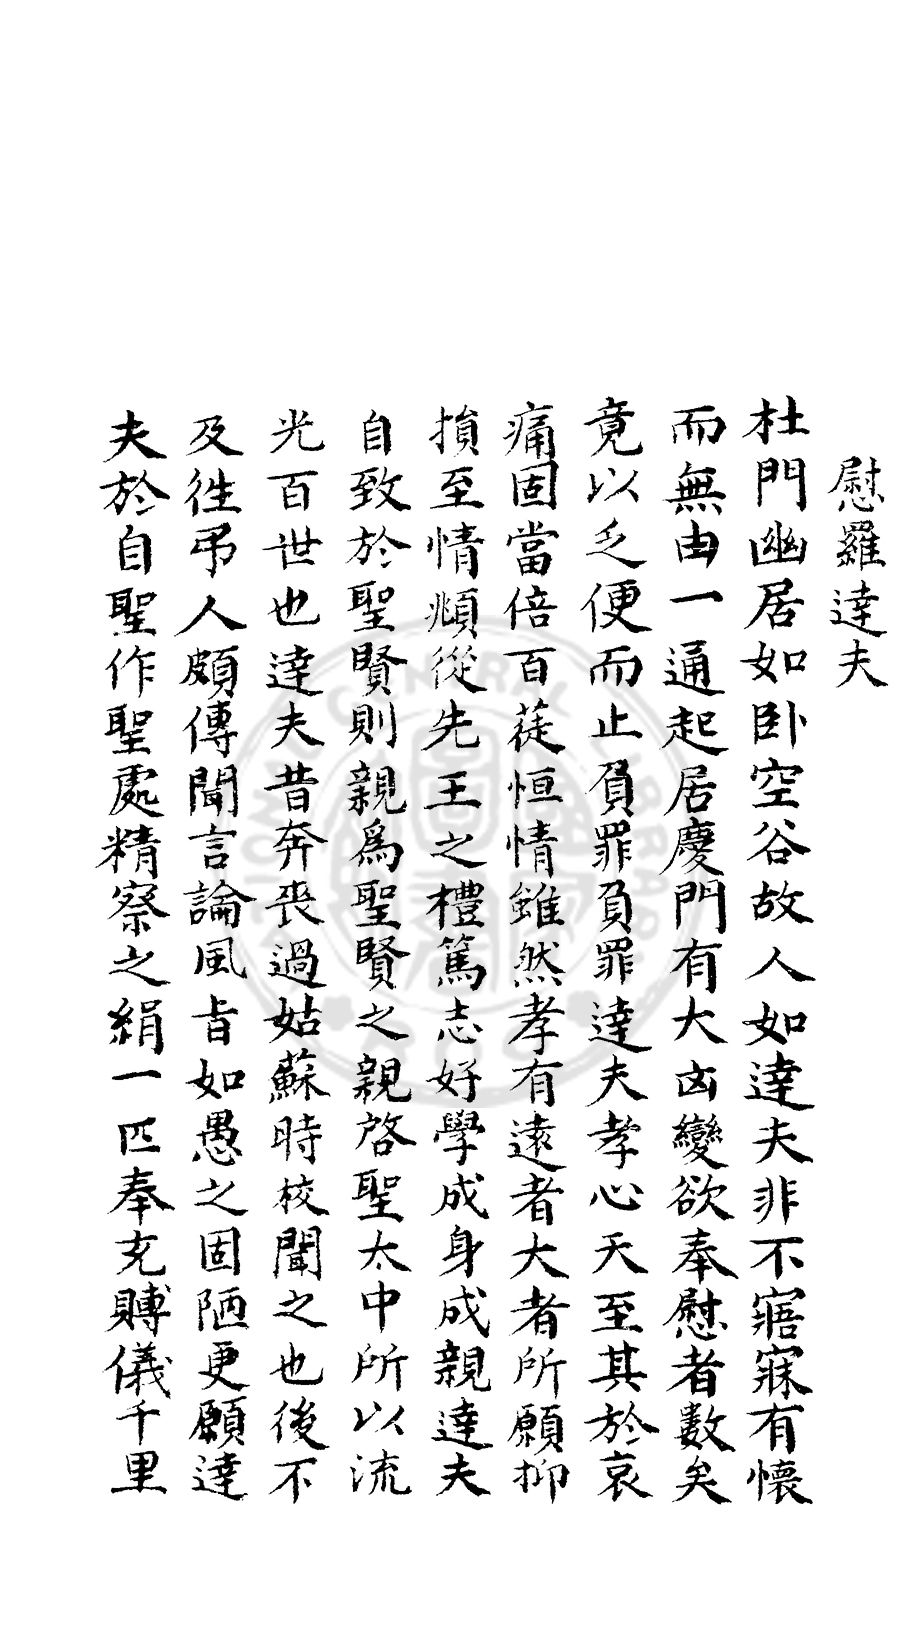 慰羅達夫
杜門幽居如卧空谷故人如達夫非不寤寐有懷
而無由一通起居慶門有大凶變欲奉慰者數矣
竟以乏便而止負罪負罪達夫孝心天至其於哀
痛固當倍百蓰恒情雖然孝有遠者大者所願抑
損至情頫從先王之禮篤志好學成身成親達夫
自致於聖賢則親爲聖賢之親啓聖太中所以流
光百世也達夫昔奔喪過姑蘇時校聞之也後不
及徃弔人頗傳聞言論風旨如愚之固陋更願達
夫於自聖作聖處精察之絹一匹奉充賻儀千里